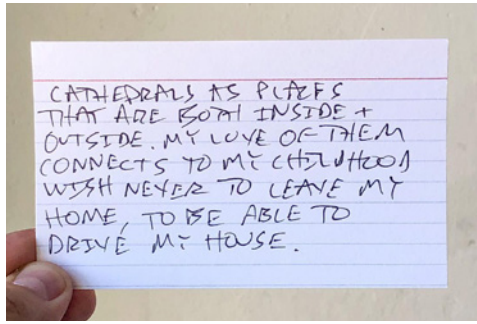 CATHEDRALS AS PLACES
THAT ARE BOTH INSIDE +
OUTSIDE. MY LOVE OF THEM
CONNECTS TO MY CHILDHOOD
WISH NEVER TO LEAVE MY
HOME, TO BE ABLE TO
DRIVE MY HOUSE.